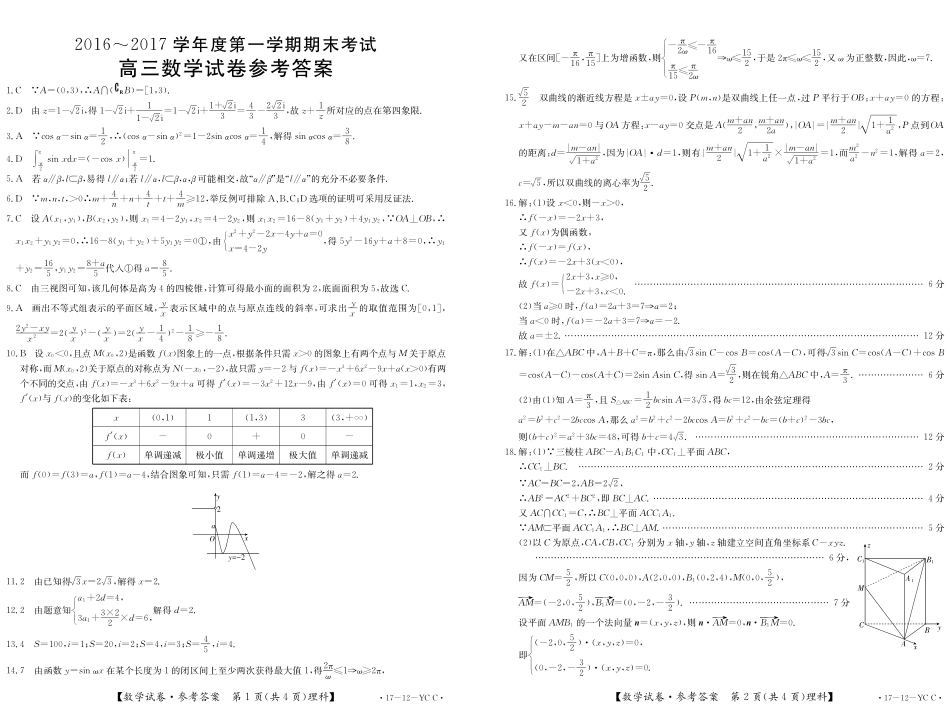 2016～2017 学年度第一学期期末考试
高三数学试卷参考答案
1.C ∵A=(0,3),∴A∩(∁RB)=[1,3).
2.D 由 z=1-√2i,得1-√2i+1/(1-√2i)=1-√2i+(1+√2i)/3=4/3-2√2i/3,故 z+1/z 所对应的点在第四象限.
3.A ∵cos α-sin α=1/2,∴(cos α-sin α)²=1-2sin αcos α=1/4,解得 sin αcos α=3/8.
4.D sin xdx=(-cos x) =1.
5.A 若 α∥β,l⊂β,易得 l∥α;若 l∥α,l⊂β,α,β 可能相交,故“α∥β”是“l∥α”的充分不必要条件.
6.D ∵m,n,t,>0∴m+4/n+n+4/t+t+4/m≥12,举反例可排除 A、B、C;D 选项的证明可采用反证法.
7.C 设 A(x₁,y₁),B(x₂,y₂),则 x₁=4-2y₁,x₂=4-2y₂,则 x₁x₂=16-8(y₁+y₂)+4y₁y₂,∵OA⊥OB,∴
x₁x₂+y₁y₂=0,∴16-8(y₁+y₂)+5y₁y₂=0①,由{x²+y²-2x-4y+a=0 x=4-2y,得 5y²-16y+a+8=0,∴y₁
+y₂=16/5,y₁y₂=(8+a)/5代入①得 a=8/5.
8.C 由三视图可知,该几何体是高为 4 的四棱锥,计算可得最小面的面积为 2,底面面积为 5,故选 C.
9.A 画出不等式组表示的平面区域,y/x表示区域中的点与原点连线的斜率,可求出y/x的取值范围为[0,1],
(2y²-xy)/x²=2(y/x)²-(y/x)=2(y/x-1/4)²-1/8≥-1/8.
10.B 设 x₀<0,且点 M(x₀,2)是函数 f(x)图象上的一点,根据条件只需 x>0 的图象上有两个点与 M 关于原点
对称,而 M(x₀,2)关于原点的对称点为 N(-x₀,-2),故只需 y=-2 与 f(x)=-x³+6x²-9x+a(x>0)有两
个不同的交点,由 f(x)=-x³+6x²-9x+a 可得 f′(x)=-3x²+12x-9,由 f′(x)=0 可得 x₁=1,x₂=3,
f′(x)与 f(x)的变化如下表:
x (0,1) 1 (1,3) 3 (3,+∞)
f′(x) - 0 + 0 -
f(x) 单调递减 极小值 单调递增 极大值 单调递减
而 f(0)=f(3)=a,f(1)=a-4,结合图象可知,只需 f(1)=a-4=-2,解之得 a=2.
y
2
a
O x
y=-2
11.2 由已知得√3x=2√3,解得 x=2.
12.2 由题意知{a₁+2d=4, 3a₁+(3×2)/2×d=6, 解得 d=2.
13.4 S=100,i=1;S=20,i=2;S=4,i=3;S=4/5,i=4.
14.7 由函数 y=sin ωx 在某个长度为 1 的闭区间上至少两次获得最大值 1,得2π/ω≤1⇒ω≥2π,
【数学试卷·参考答案 第 1 页(共 4 页)理科】 ·17-12-YC C·
又在区间[-π/16,π/15]上为增函数,则{-π/2ω≤-π/16 π/15≤π/2ω⇒ω≤15/2,于是 2π≤ω≤15/2,又 ω 为正整数,因此,ω=7.
15.√5/2 双曲线的渐近线方程是 x±ay=0,设 P(m,n)是双曲线上任一点,过 P 平行于 OB:x+ay=0 的方程:
x+ay-m-an=0 与 OA 方程:x-ay=0 交点是 A((m+an)/2,(m+an)/2a),|OA|=|(m+an)/2|√(1+1/a²),P 点到 OA
的距离:d=|m-an|/√(1+a²),因为|OA|·d=1,则有|(m+an)/2|√(1+1/a²)×|m-an|/√(1+a²)=1,而m²/a²-n²=1,解得 a=2,
c=√5,所以双曲线的离心率为√5/2.
16.解:(1)设 x<0,则-x>0,
∴f(-x)=-2x+3,
又 f(x)为偶函数,
∴f(-x)=f(x),
∴f(x)=-2x+3(x<0),
故 f(x)={2x+3,x≥0, -2x+3,x<0. …… 6 分
(2)当 a≥0 时,f(a)=2a+3=7⇒a=2;
当 a<0 时,f(a)=-2a+3=7⇒a=-2.
故 a=±2. …… 12 分
17.解:(1)在△ABC 中,A+B+C=π,那么由√3sin C-cos B=cos(A-C),可得√3sin C=cos(A-C)+cos B
=cos(A-C)-cos(A+C)=2sin Asin C,得 sin A=√3/2,则在锐角△ABC 中,A=π/3. …… 6 分
(2)由(1)知 A=π/3,且 S△ABC=1/2bcsin A=3√3,得 bc=12,由余弦定理得
a²=b²+c²-2bccos A,那么 a²=b²+c²-2bccos A=b²+c²-bc=(b+c)²-3bc,
则(b+c)²=a²+3bc=48,可得 b+c=4√3. …… 12 分
18.解:(1)∵三棱柱 ABC-A₁B₁C₁ 中,CC₁⊥平面 ABC,
∴CC₁⊥BC. …… 2 分
∵AC=BC=2,AB=2√2,
∴AB²=AC²+BC²,即 BC⊥AC. …… 4 分
又 AC∩CC₁=C,∴BC⊥平面 ACC₁A₁.
∵AM⊂平面 ACC₁A₁,∴BC⊥AM. …… 5 分
(2)以 C 为原点,CA,CB,CC₁ 分别为 x 轴,y 轴,z 轴建立空间直角坐标系 C-xyz.
…… 6 分,
因为 CM=5/2,所以 C(0,0,0),A(2,0,0),B₁(0,2,4),M(0,0,5/2),
AM=(-2,0,5/2),B₁M=(0,-2,-3/2). …… 7 分
设平面 AMB₁ 的一个法向量 n=(x,y,z),则 n·AM=0,n·B₁M=0.
即{(-2,0,5/2)·(x,y,z)=0, (0,-2,-3/2)·(x,y,z)=0.
z
C₁ B₁
A₁
M
C B y
A x
【数学试卷·参考答案 第 2 页(共 4 页)理科】 ·17-12-YC C·